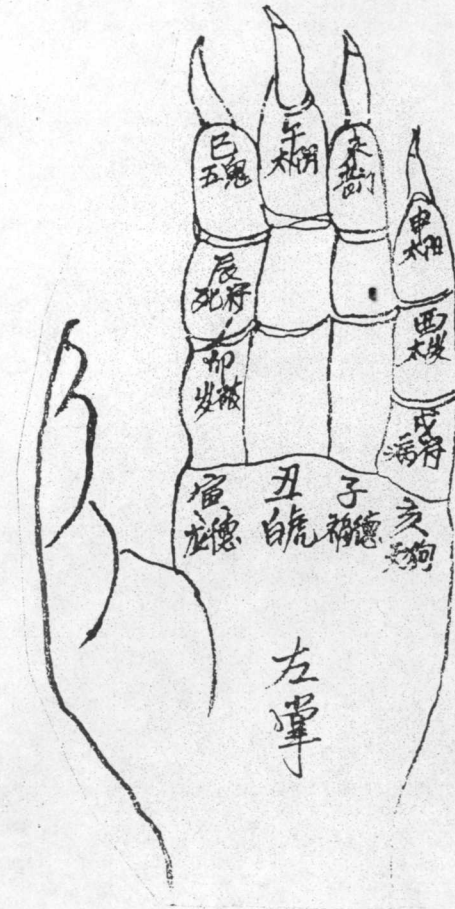 巳
五鬼
午
太阴
未
丧门
申
太阳
辰
死符
酉
太岁
卯
岁破
戌
病符
寅
龙德
丑
白虎
子
福德
亥
天狗
左掌